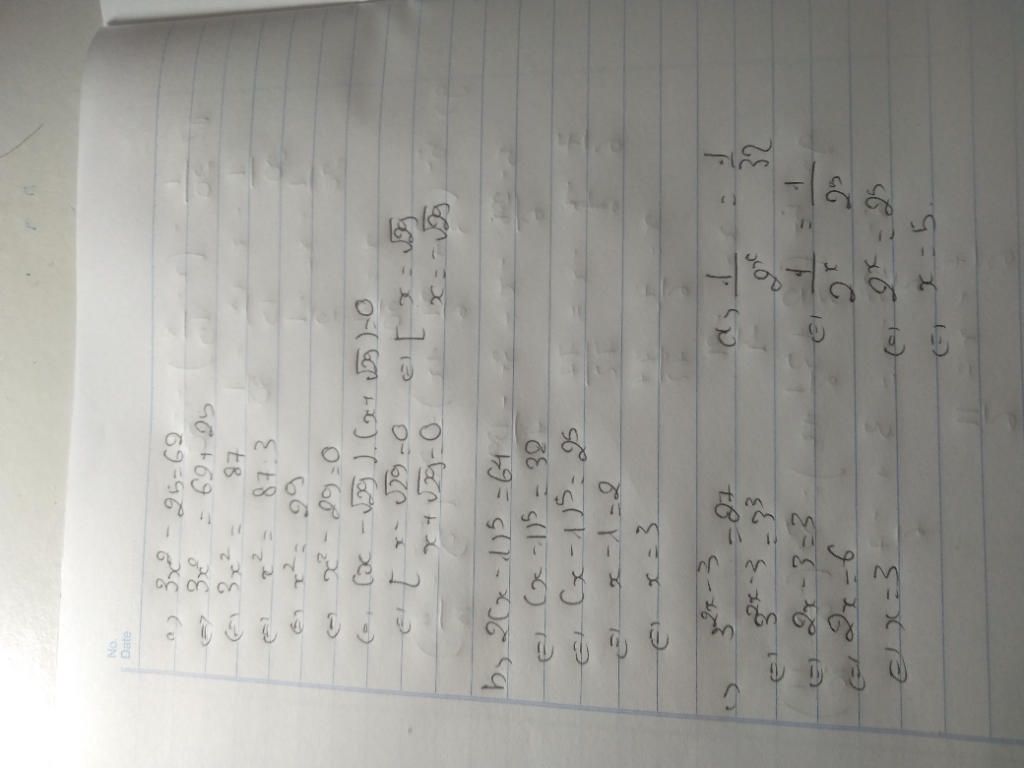 No.
Date
a, 3x² - 25 = 62
(=) 3x² = 62 + 25
(=) 3x² = 87
(=) x² = 87:3
(=) x² = 29
(=) x² - 29 = 0
(=) (x - √29).(x + √29) = 0
(=) [ x - √29 = 0 (=) [ x = √29
x + √29 = 0 x = -√29
b, 2(x - 1)⁵ = 64
(=) (x - 1)⁵ = 32
(=) (x - 1)⁵ = 2⁵
(=) x - 1 = 2
(=) x = 3
c) 3²ˣ⁻³ = 27
(=) 3²ˣ⁻³ = 3³
(=) 2x - 3 = 3
(=) 2x = 6
(=) x = 3
d, 1/2ˣ = 1/32
(=) 1/2ˣ = 1/2⁵
(=) 2ˣ = 2⁵
(=) x = 5.